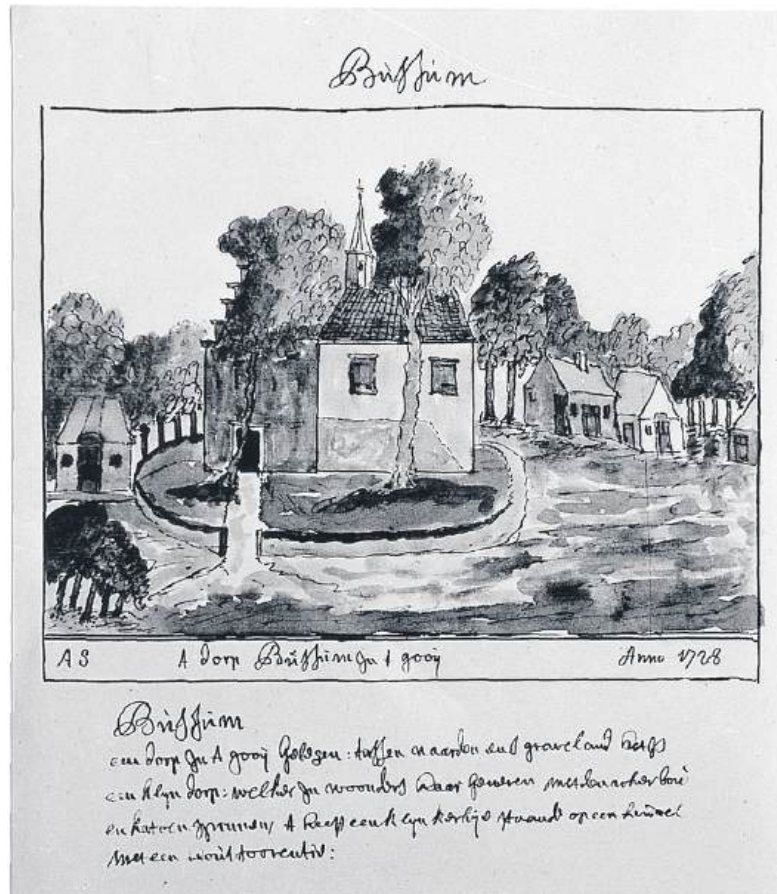 Bussum
AS
A dorp Bussum In t gooij
Anno 1728
Bussum
een dorp In t gooij gelegen: tussen naarden en s graveland het is
een klyn dorp: welker In woonders haar generen met den acker bou
en katoen spinnen, t heeft een klyn kerkije staande op een heuvel
met een hout toorentie: